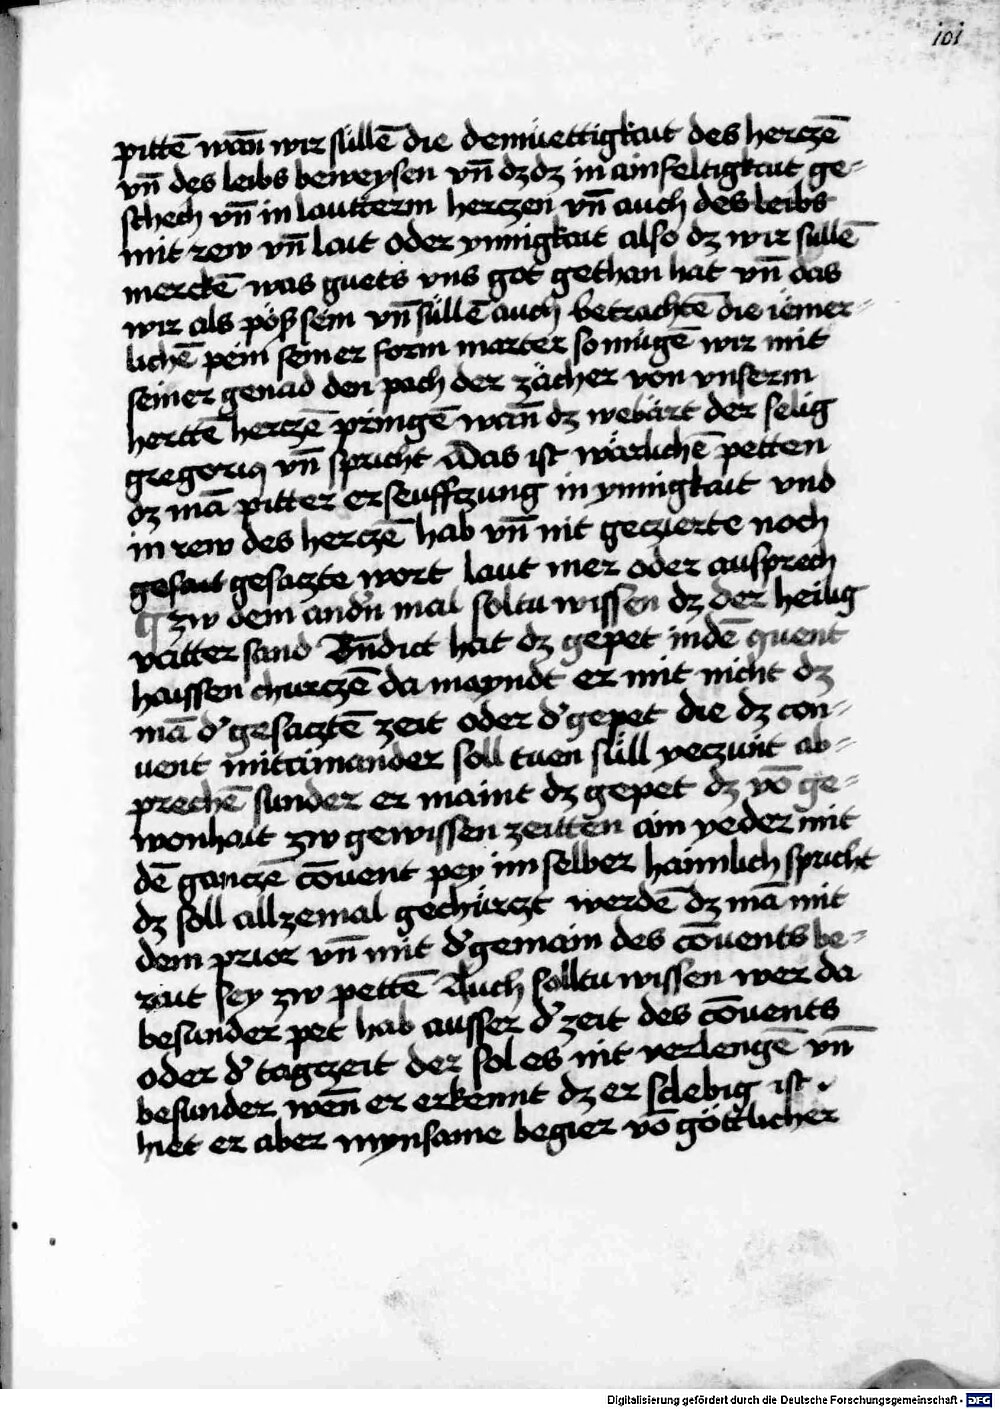 101
pittē wan̄ wir süllē die demüettigkait des herczē
vn̄ des leibs beweysen vn̄ dz dz in ainfeltigkait ge=
schech vn̄ in lautterm herczen vn̄ auch des leibs
mit rew vn̄ lait oder ynnigkait also dz wir süllē
merckē was guets vns got gethan hat vn̄ das
wir als pöß sein vn̄ süllē auch betrachtē die iemer=
lichē pein seiner form marter so mügē wir mit
seiner genad den pach der zächer von vnserm
herttē herczē pringē wan̄ dz webärt der selig
gregoriꝰ vn̄ spricht Das ist wärlichē petten
dz mā pitter erseufftzung in ynnigkait vnd
in rew des herczē hab vn̄ nit geczierte noch
gesait gesaczte wort laut mer oder aussprech
¶ zw dem and̓n mal soltu wissen dz der heilig
vatter sand Bn̄dict hat dz gepet in dē quent
haissen churczē da mayndt er mit nicht dz
mā d̓ gesacztē zeit oder d̓ gepet die dz con=
uent miteinander soll tuen süll yeczunt ab=
prechē sunder er maint dz gepet dz vō ge=
wonhait zw gewissen zeitten ain yeder mit
dē ganczē cōuent pey im selber haimlich spricht
dz soll allzemal gechürczt werdē dz mā mit
dem prior vn̄ mit d̓ gemain des cōuents be=
rait sey zw pettē Auch solltu wissen wer da
besunder pet hab ausser d̓ zeit des cōuents
oder d̓ tagczeit der sol es nit verlengē vn̄
besunder wen̄ er erkennt dz er slebig ist.
hiet er aber mynsame begier vō göttlicher
Digitalisierung gefördert durch die Deutsche Forschungsgemeinschaft - DFG